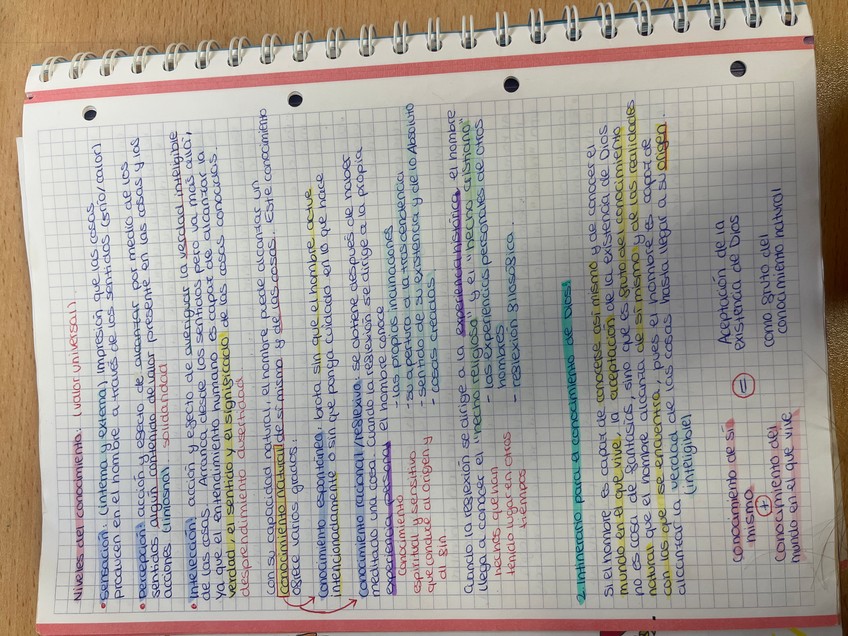 Niveles del conocimiento: (valor universal)
• Sensación: (interna y externa) impresión que las cosas
producen en el hombre a través de los sentidos (frío/calor)
• Percepción: acción y efecto de alcanzar por medio de los
sentidos algún contenido de valor presente en las cosas y las
acciones (limosna). solidaridad
• Intelección: acción y efecto de averiguar la verdad inteligible
de las cosas. Arranca desde los sentidos, pero va más allá,
ya que el entendimiento humano es capaz de alcanzar la
verdad, el sentido y el significado de las cosas conocidas.
desprendimiento
Con su capacidad natural, el hombre puede alcanzar un
conocimiento natural de sí mismo y de las cosas. Este conocimiento
ofrece varios grados:
Conocimiento espontáneo: brota sin que el hombre actúe
intencionadamente o sin que ponga cuidado en lo que hace
Conocimiento racional/reflexivo: se obtiene después de haber
meditado una cosa. Cuando la reflexión se dirige a la propia
experiencia personal el hombre conoce
- las propias inclinaciones
- su apertura a la trascendencia
- sentido de su existencia y de lo Absoluto
- cosas creadas.
Conocimiento
espiritual y sensitivo
que conduce al origen y
al fin
Cuando la reflexión se dirige a la experiencia histórica el hombre
llega a conocer el "hecho religioso" y el "hecho cristiano"
- las experiencias personales de otros
hombres
- reflexión filosófica.
hechos que han
tenido lugar en otros
tiempos
2. Intinerario para el conocimiento de Dios:
Si el hombre es capaz de conocerse así mismo y de conocer el
mundo en el que vive, la aceptación de la existencia de Dios
no es cosa de fantasías, sino que es fruto del conocimiento
natural que el hombre alcanza de sí mismo y de las realidades
con las que se encuentra, pues el hombre es capaz de
alcanzar la verdad de las cosas hasta llegar a su origen.
(inteligible)
Conocimiento de sí
mismo
+
Conocimiento del
mundo en el que vive
=
Aceptación de la
existencia de Dios
como fruto del
conocimiento natural